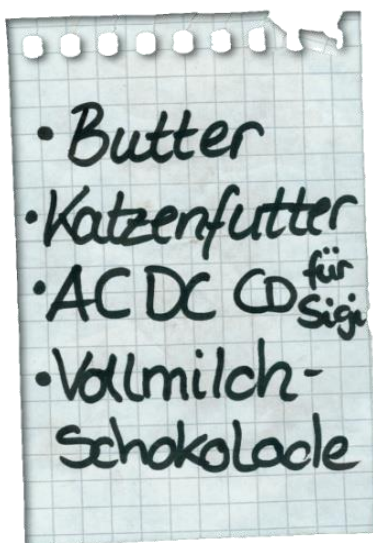 • Butter
• Katzenfutter
• AC DC CD für Sigi
• Vollmilch-
Schokolade